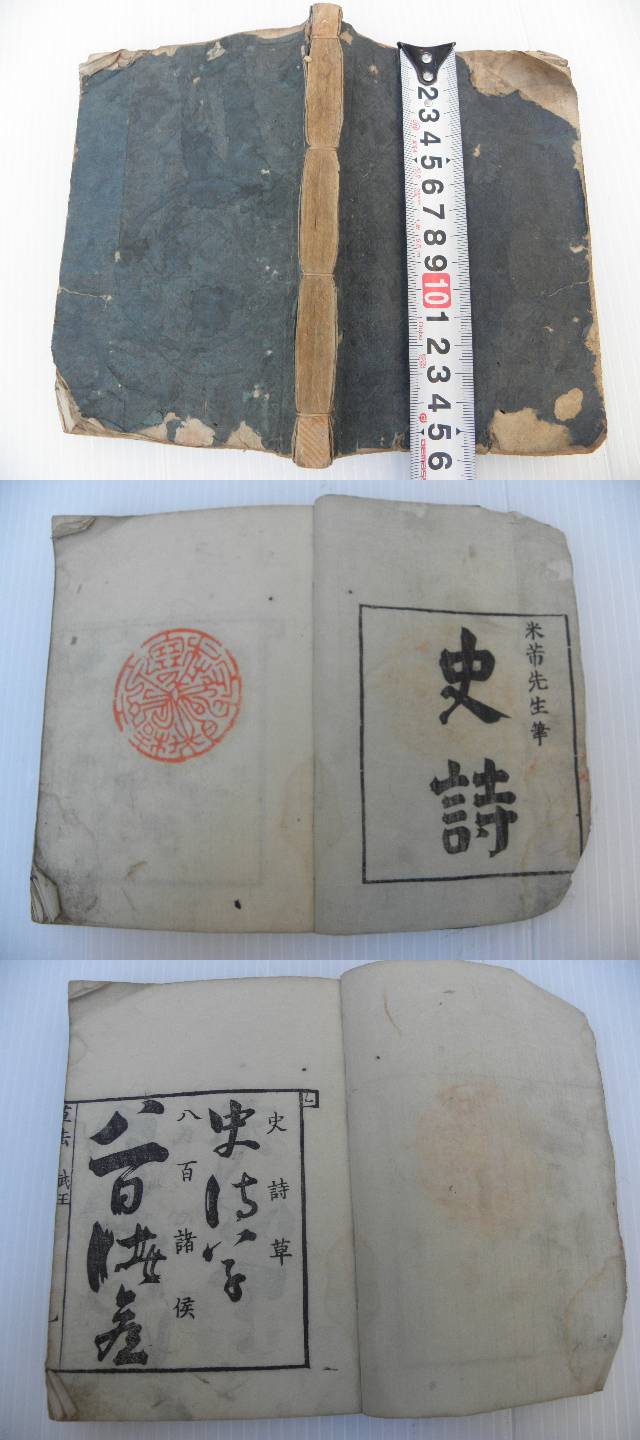 2
3
4
5
6
7
8
9
10
1
2
3
4
5
6
米芾先生筆
史詩
史詩草
史詩草
八百諸侯
八百諸侯
草法 武王